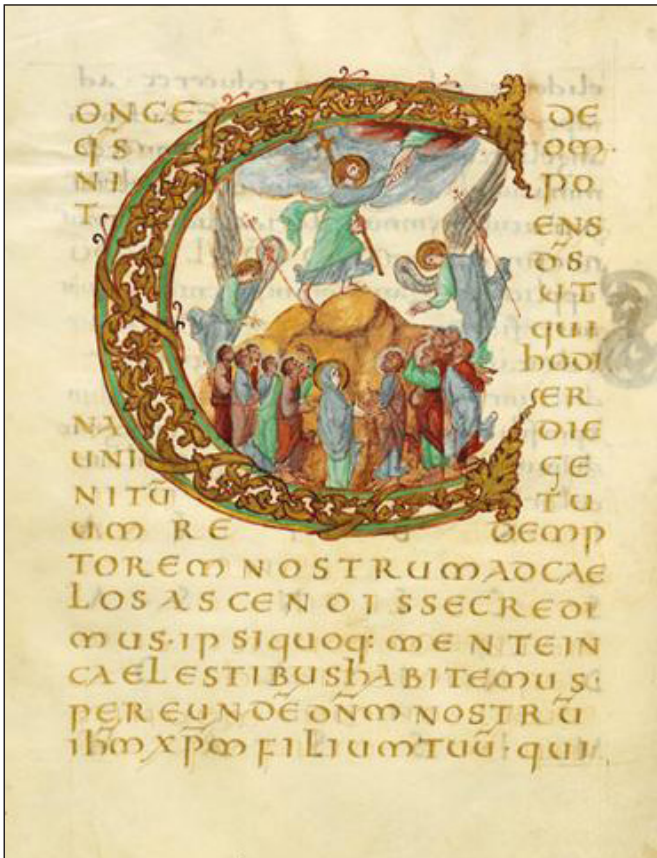 CONCE DE
q̄S OM·
NI PO
T ENS
D̄S
UT
qui
hODI
ER
NA DIE
UNI GE
NITŪ TU
UM RE DEMP
TOREM NOSTRUM AD CAE
LOS ASCENDISSE CREDI
MUS· IPSI QUOQ: MENTE IN
CAELESTIBUS hABITEMUS·
PER EUNDĒ DN̄M NOSTRŪ
ih̄m xp̄m FILIUM TUŪ· QUI